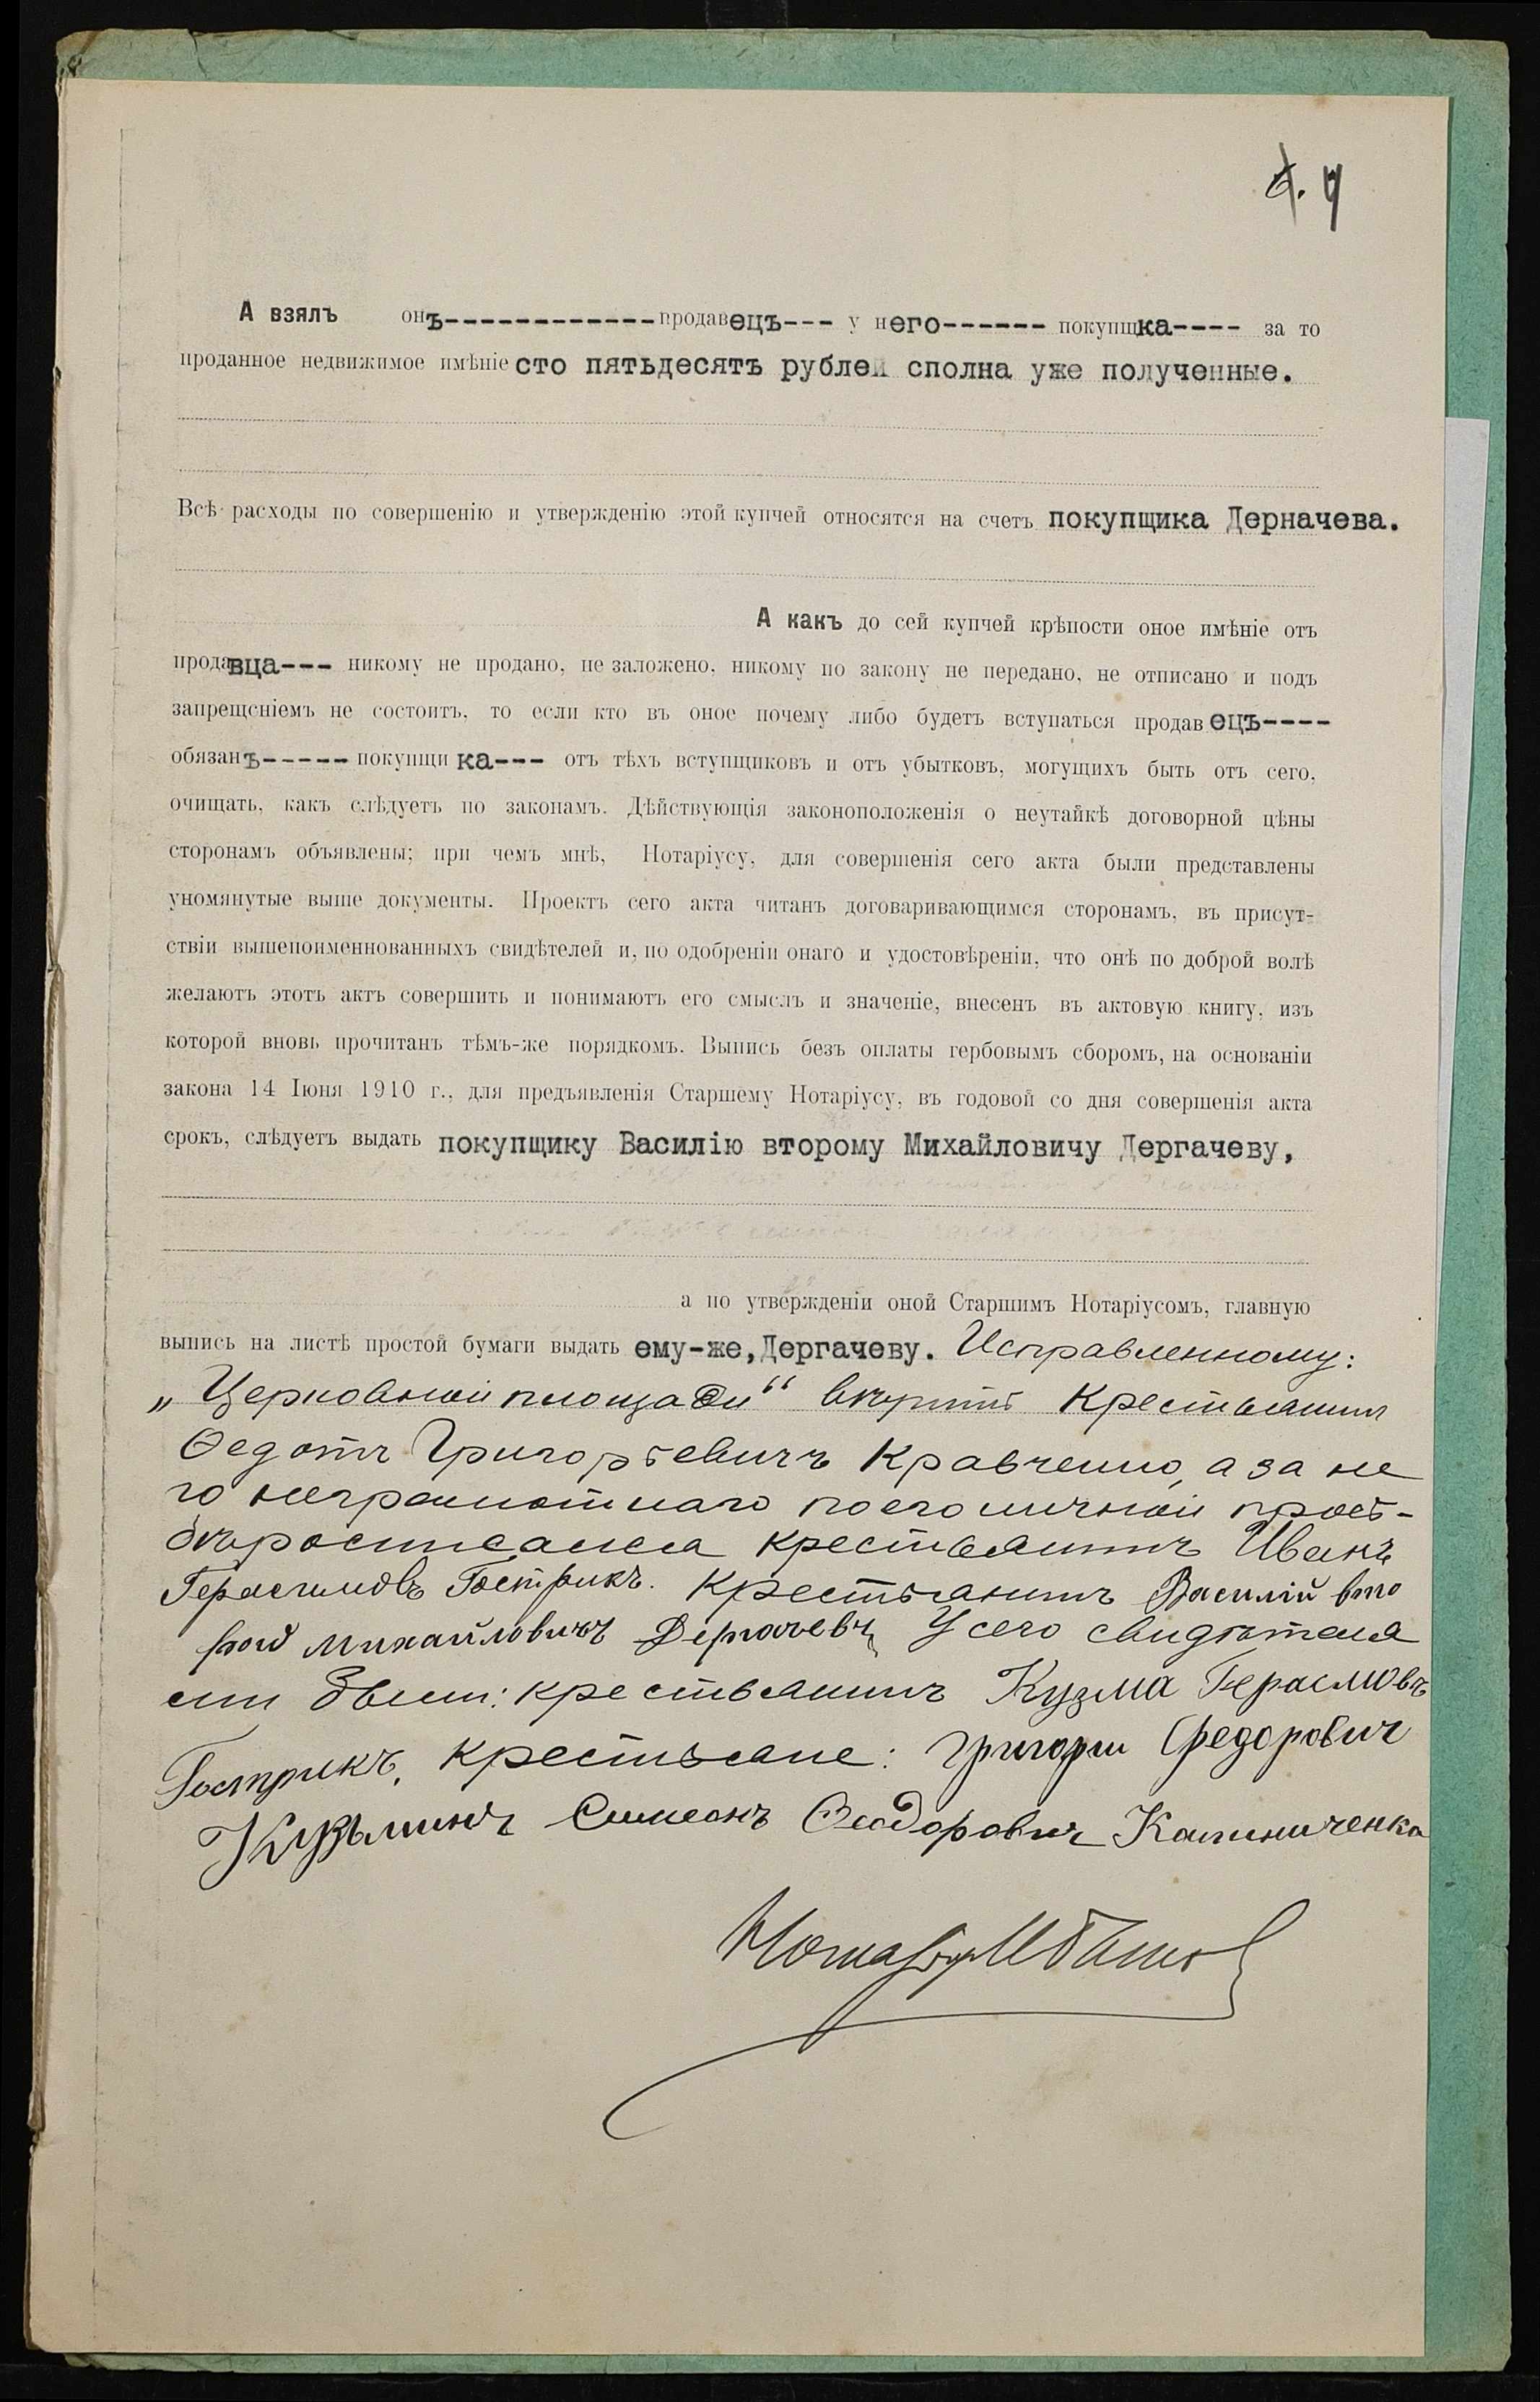 6. 4
А взялъ онъ------------- продавецъ--- у него------ покупщка---- за то
проданное недвижимое имѣніе сто пятьдесятъ рублей сполна уже полученные.
Всѣ расходы по совершенію и утвержденію этой купчей относятся на счетъ покупщика Дерначева.
А какъ до сей купчей крѣпости оное имѣніе отъ
продавца--- никому не продано, не заложено, никому по закону не передано, не отписано и подъ
запрещеніемъ не состоитъ, то если кто въ оное почему либо будетъ вступаться продавецъ----
обязанъ----- покупщика--- отъ тѣхъ вступщиковъ и отъ убытковъ, могущихъ быть отъ сего,
очищать, какъ слѣдуетъ по законамъ. Дѣйствующія законоположенія о неутайкѣ договорной цѣны
сторонамъ объявлены; при чемъ мнѣ, Нотаріусу, для совершенія сего акта были представлены
упомянутые выше документы. Проектъ сего акта читанъ договаривающимся сторонамъ, въ присут-
ствіи вышепоименнованныхъ свидѣтелей и, по одобреніи онаго и удостовѣреніи, что онѣ по доброй волѣ
желаютъ этотъ актъ совершить и понимаютъ его смыслъ и значеніе, внесенъ въ актовую книгу, изъ
которой вновь прочитанъ тѣмъ-же порядкомъ. Выпись безъ оплаты гербовымъ сборомъ, на основаніи
закона 14 Іюня 1910 г., для предъявленія Старшему Нотаріусу, въ годовой со дня совершенія акта
срокъ, слѣдуетъ выдать покупщику Василію второму Михайловичу Дергачеву,
а по утвержденіи оной Старшимъ Нотаріусомъ, главную
выпись на листѣ простой бумаги выдать ему-же, Дергачеву. Исправленному:
„Церковной площади“ вѣрить Крестьянинъ
Ѳедотъ Григорьевичъ Кравченко, а за не
го неграмотнаго по его личной прось-
бѣ росписался крестьянинъ Иванъ
Герасимовъ Гострикъ. Крестьянинъ Василій вто
рой Михайловичъ Дергачевъ У сего свидѣтеля
ми были: крестьянинъ Кузма Герасмовъ
Гострикъ, крестьяне: Григори Федорович
Кузьминъ Симеонъ Ѳеодорович Калиниченка
Нотаріусъ